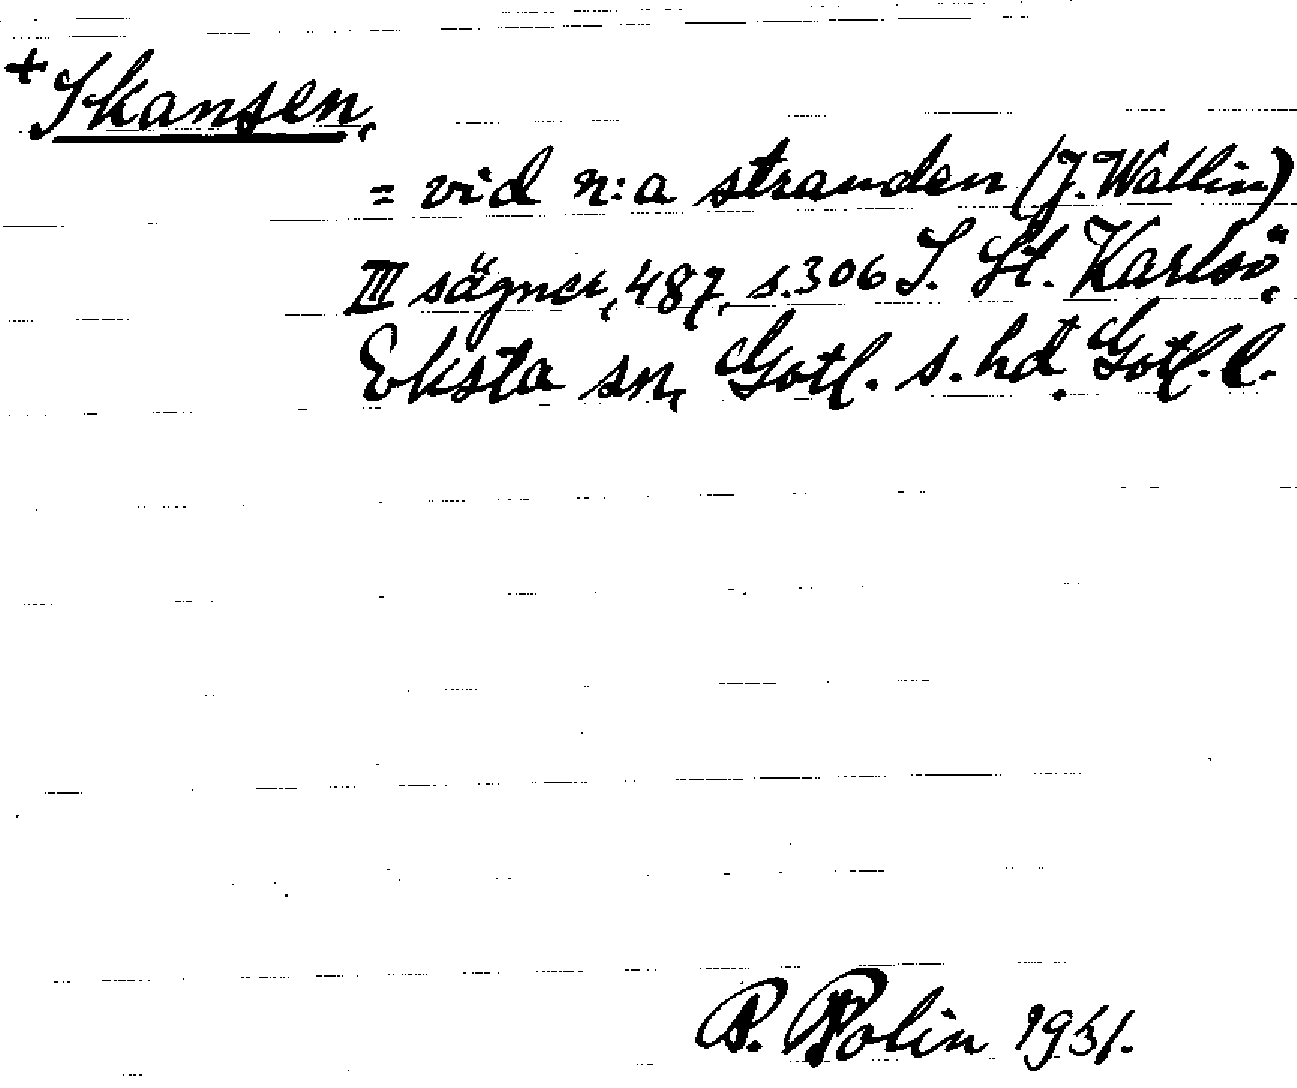 + Skansen,
= vid n:a stranden (J. Wallin)
III sägner, 487, s. 306 I. St. Karlsö,
Eksta sn, Gotl. s. hd. Gotl. l.
P. Rolin 1931.